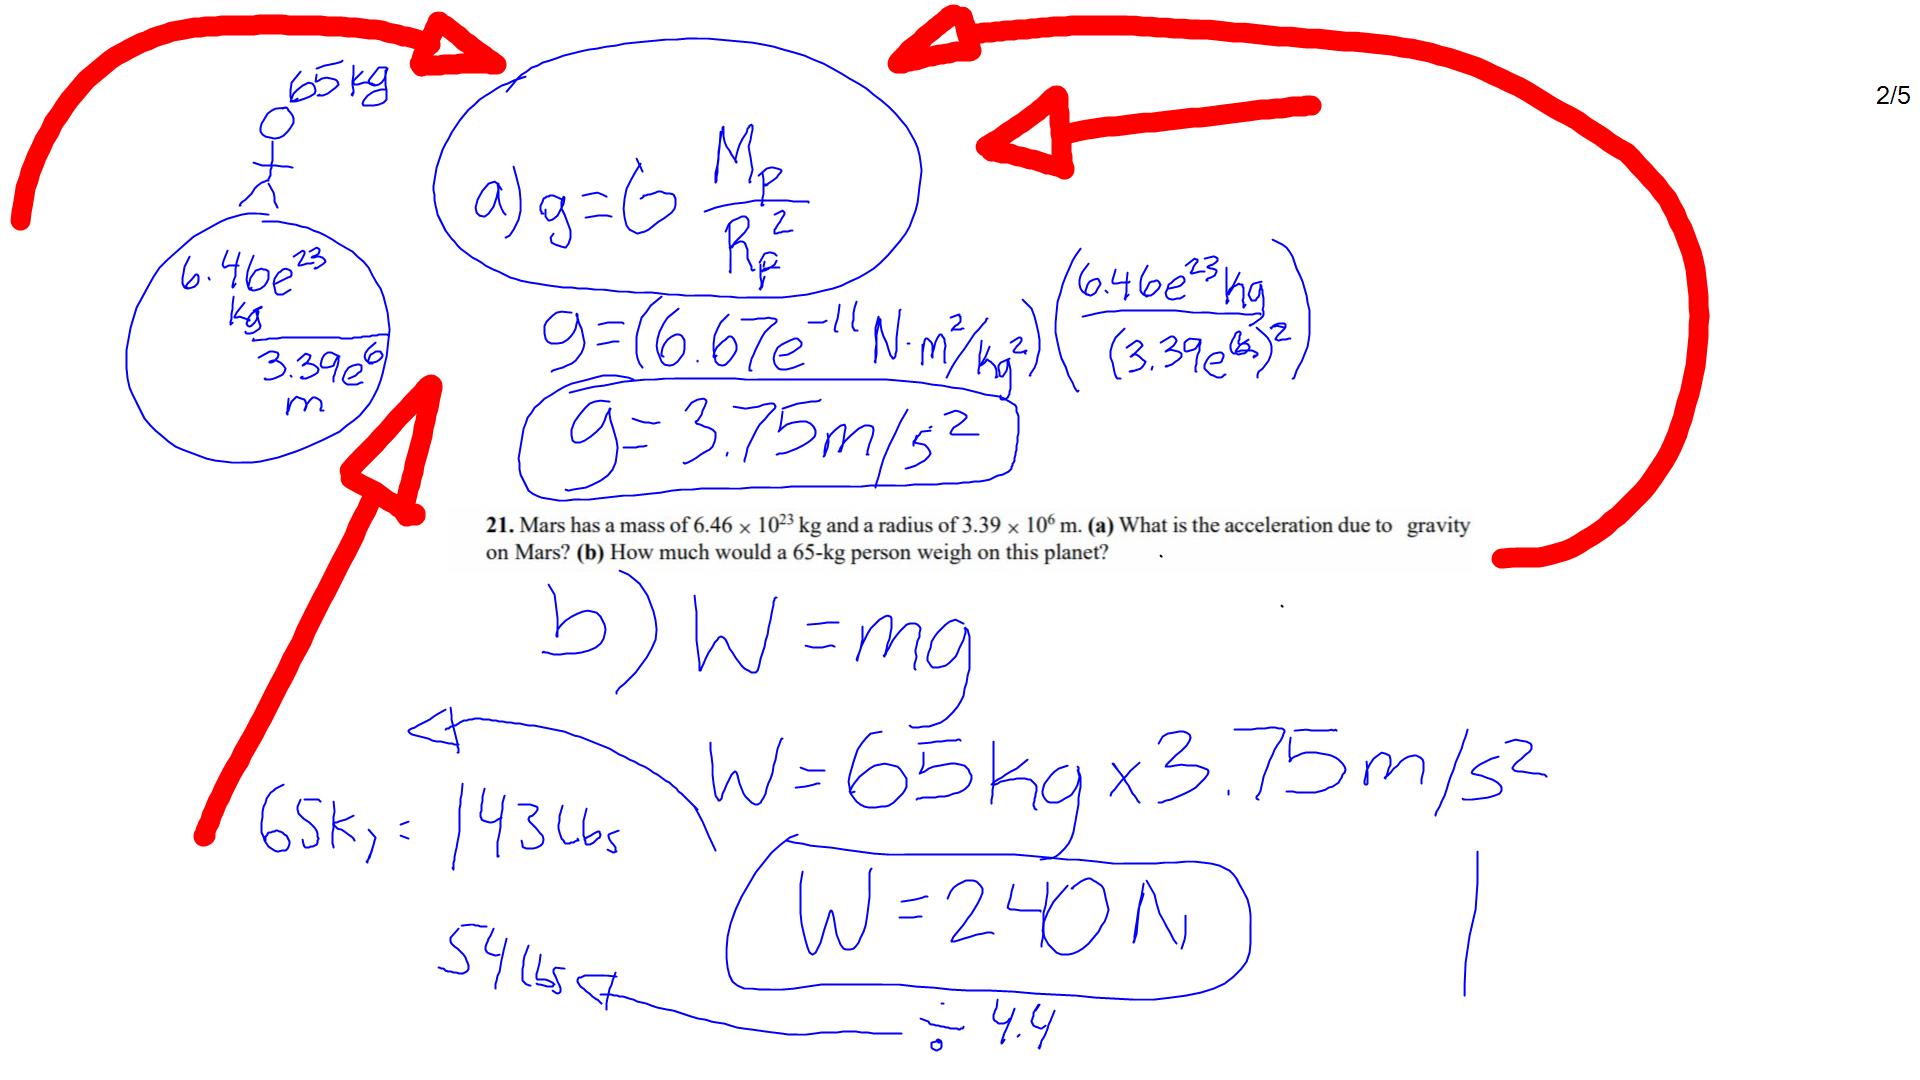 2/5
65kg
6.46e²³
kg
3.39e⁶
m
a) g = G Mp / Rp²
g = (6.67e⁻¹¹ N·m²/kg²) (6.46e²³kg / (3.39e⁶)²)
g = 3.75m/s²
21. Mars has a mass of 6.46 × 10²³ kg and a radius of 3.39 × 10⁶ m. (a) What is the acceleration due to gravity
on Mars? (b) How much would a 65-kg person weigh on this planet?
b) W = mg
W = 65kg x 3.75m/s²
65kg = 143lbs
W = 240N
54lbs
÷ 4.4